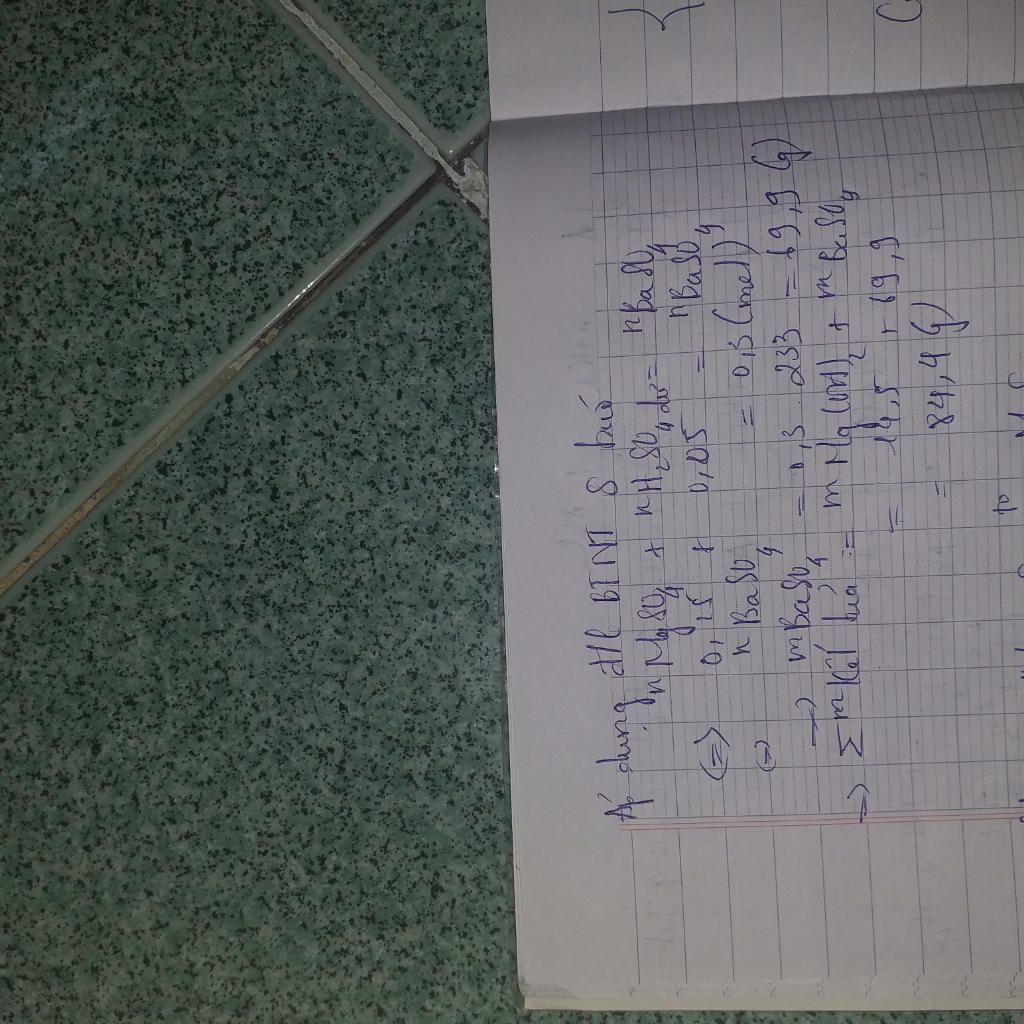 Áp dụng ĐL BTNT S có:
nMgSO4 + nH2SO4 dư = nBaSO4
(=) 0,25 + 0,05 = nBaSO4
(=) nBaSO4 = 0,3 (mol)
→ mBaSO4 = 0,3 . 233 = 69,9 (g)
=> ∑ m kết tủa = m Mg(OH)2 + m BaSO4
= 14,5 + 69,9
= 84,4 (g)